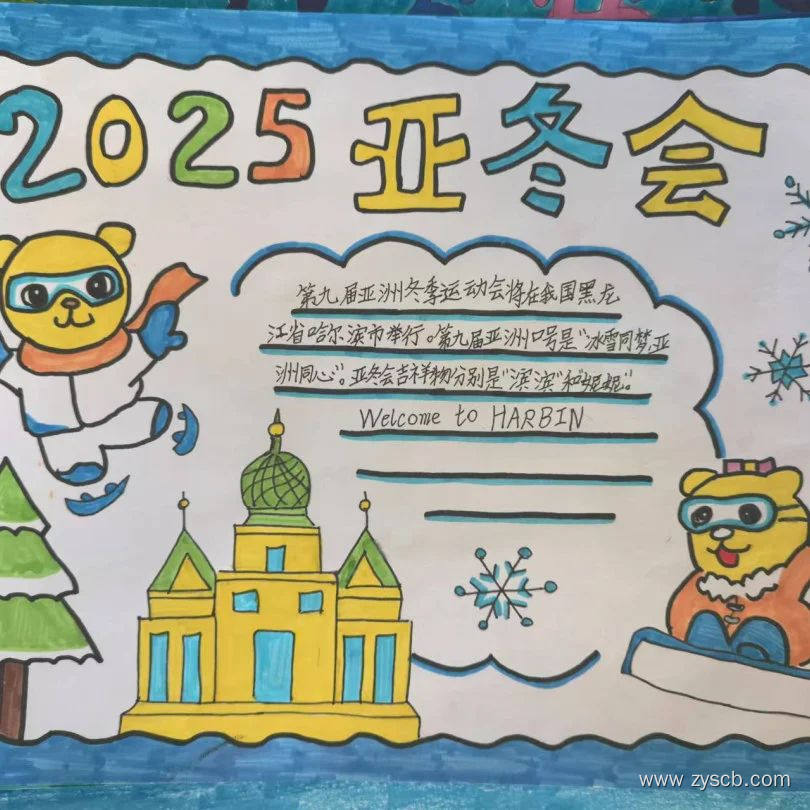 2025 亚冬会
第九届亚洲冬季运动会将在我国黑龙
江省哈尔滨市举行。第九届亚洲口号是"冰雪同梦,亚
洲同心"。亚冬会吉祥物分别是"滨滨"和"妮妮"。
Welcome to HARBIN
www.zyscb.com